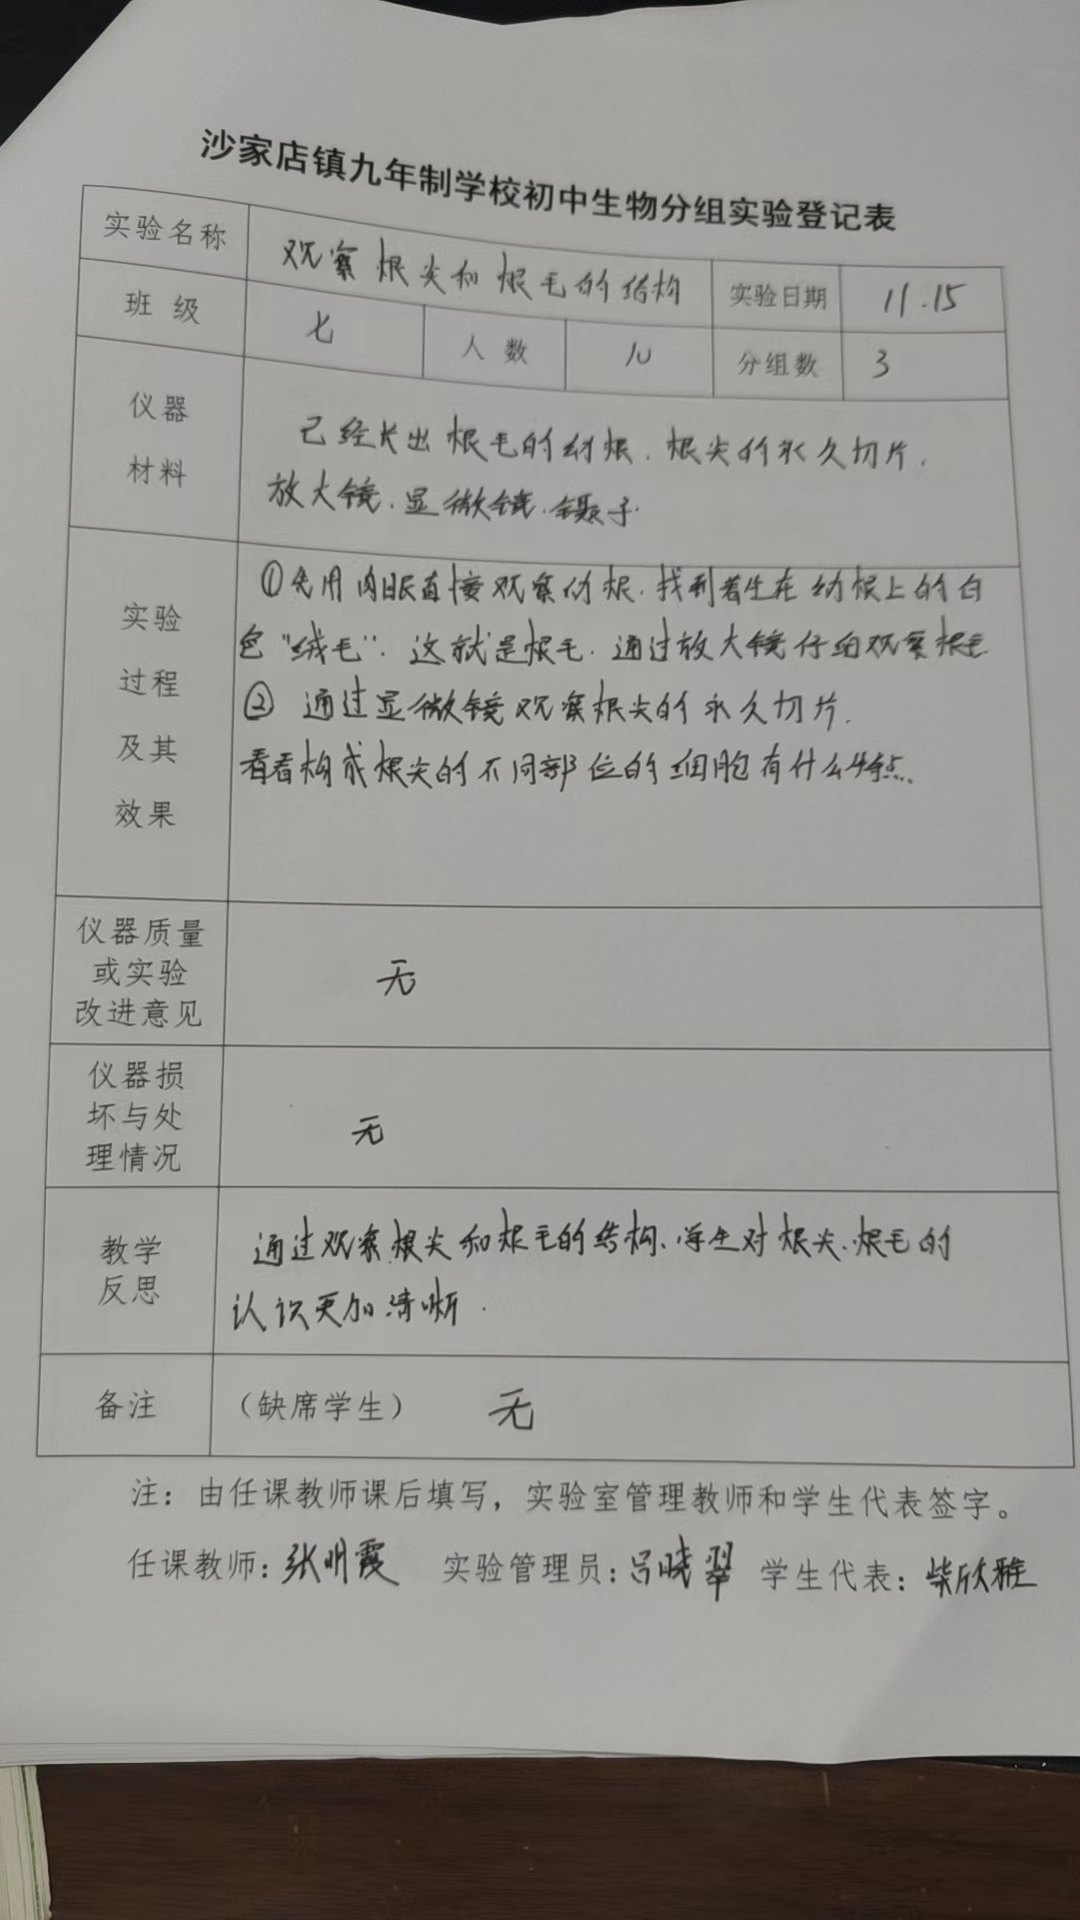 沙家店镇九年制学校初中生物分组实验登记表
实验名称 观察根尖和根毛的结构 实验日期 11.15
班 级 七 人 数 10 分组数 3
仪器
材料
已经长出根毛的幼根.根尖的永久切片.
放大镜.显微镜.镊子.
实验
过程
及其
效果
①先用肉眼直接观察幼根.找到着生在幼根上的白
色“绒毛”.这就是根毛.通过放大镜仔细观察根毛
② 通过显微镜观察根尖的永久切片.
看看构成根尖的不同部位的细胞有什么特点.
仪器质量
或实验
改进意见
无
仪器损
坏与处
理情况
无
教学
反思
通过观察根尖和根毛的结构.学生对根尖.根毛的
认识更加清晰.
备注 (缺席学生) 无
注：由任课教师课后填写，实验室管理教师和学生代表签字。
任课教师:张明霞 实验管理员:吕晓翠 学生代表:柴欣雅